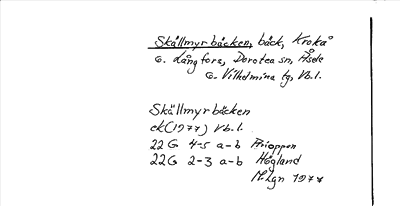 Skållmyrbäcken, bäck, Kroka
G. Långfors, Dorotea sn, Åsele
G. Vilhelmina tg, Vb.l.
Skållmyrbäcken
ek (1977) Vb.l.
22G 4-5 a-b
22G 2-3 a-b Högland
M.Lgn